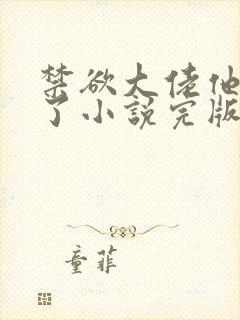 禁欲大佬他
了小說完版
童菲